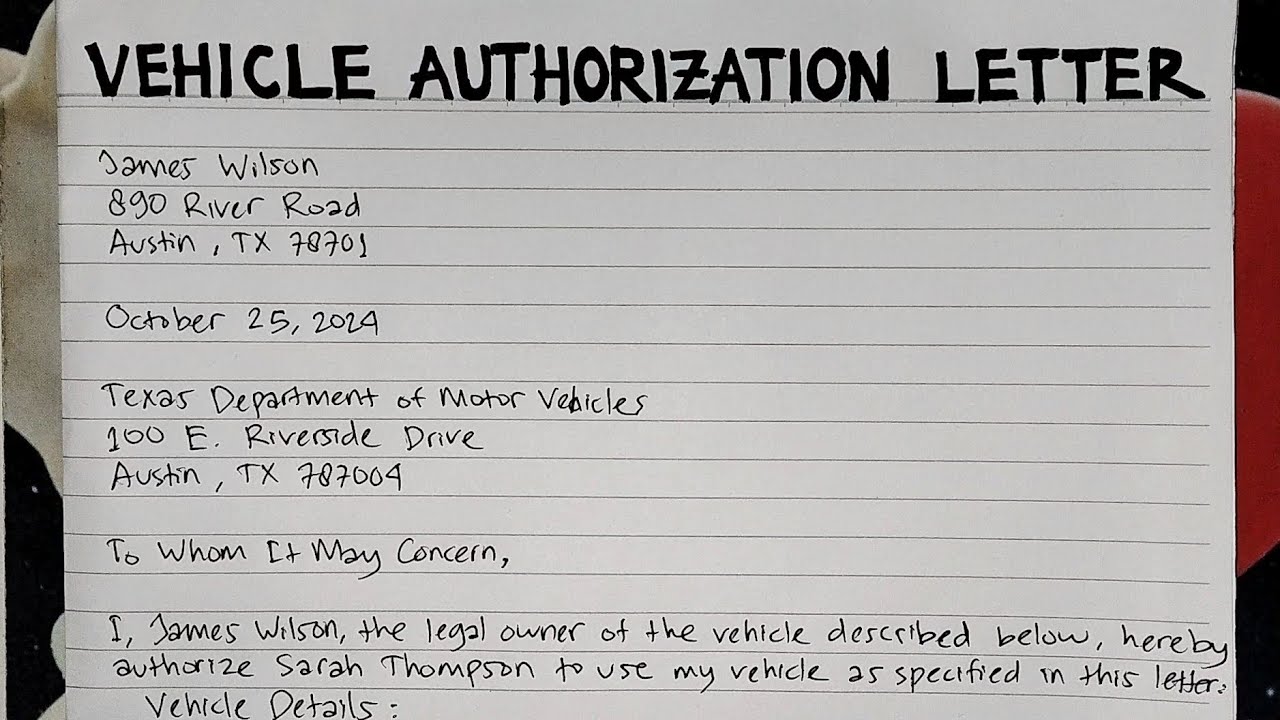 VEHICLE AUTHORIZATION LETTER
James Wilson
890 River Road
Austin, TX 78701
October 25, 2024
Texas Department of Motor Vehicles
100 E. Riverside Drive
Austin, TX 787004
To Whom It May Concern,
I, James Wilson, the legal owner of the vehicle described below, hereby
authorize Sarah Thompson to use my vehicle as specified in this letter:
Vehicle Details: